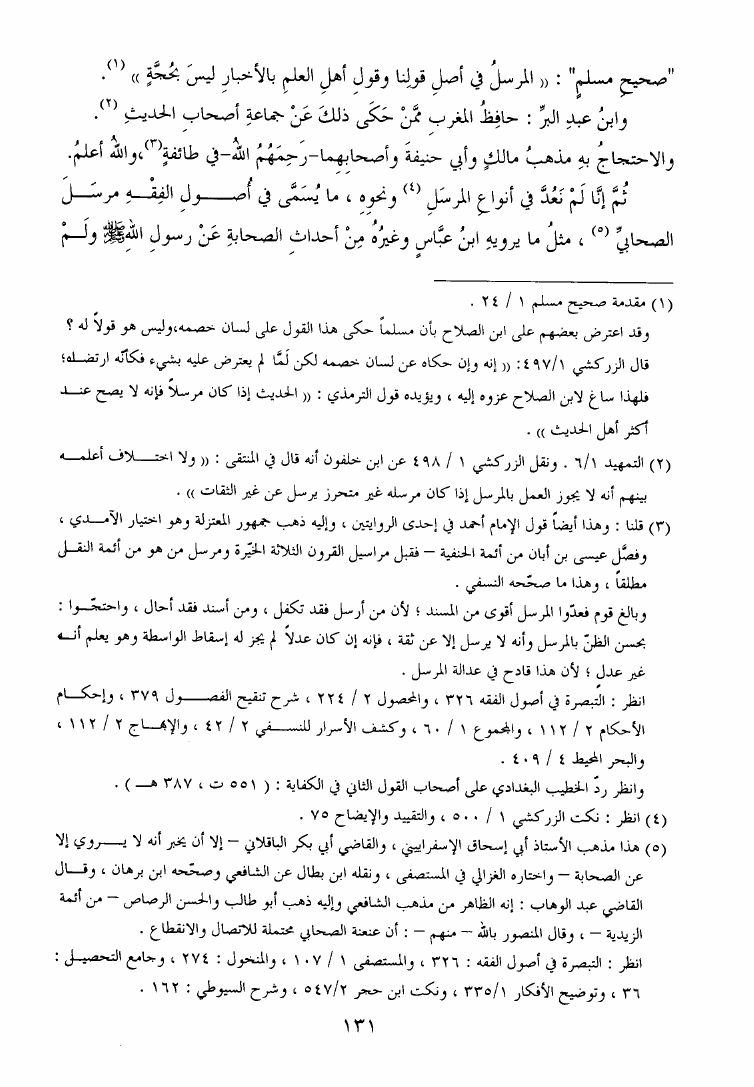 "صحيحِ مسلمٍ" : « المرسلُ في أصلِ قولِنا وقولِ أهلِ العلمِ بالأخبارِ ليسَ بحُجَّةٍ » (١).
وابنُ عبدِ البرِّ : حافِظُ المغربِ ممَّنْ حَكَى ذلكَ عَنْ جماعةِ أصحابِ الحديثِ (٢).
والاحتجاجُ بهِ مذهبُ مالكٍ وأبي حنيفةَ وأصحابِهِما-رَحِمَهُمُ اللهُ-في طائفةٍ(٣)،واللهُ أعلمُ.
ثُمَّ إنَّا لَمْ نَعُدَّ في أنواعِ المرسَلِ (٤) ونحوِهِ ، ما يُسَمَّى في أُصـــولِ الفِقْـــهِ مرسَـــلَ
الصحابيِّ (٥) ، مثلُ ما يرويهِ ابنُ عبَّاسٍ وغيرُهُ مِنْ أحداثِ الصحابةِ عَنْ رسولِ اللهِ ﷺ ولَـــمْ
(١) مقدمة صحيح مسلم ١ / ٢٤ .
وقد اعترض بعضهم على ابن الصلاح بأن مسلماً حكى هذا القول على لسان خصمه،وليس هو قولاً له ؟
قال الزركشي ٤٩٧/١: « إنه وإن حكاه عن لسان خصمه لكن لَمَّا لم يعترض عليه بشيء فكأنّه ارتضـله؛
فلهذا ساغ لابن الصلاح عزوه إليه ، ويؤيده قول الترمذي : « الحديث إذا كان مرسلاً فإنه لا يصح عنـــد
أكثر أهل الحديث » .
(٢) التمهيد ٦/١ . ونقل الزركشي ١ / ٤٩٨ عن ابن خلفون أنه قال في المنتقى : « ولا اختـــلاف أعلمـــه
بينهم أنه لا يجوز العمل بالمرسل إذا كان مرسله غير متحرز يرسل عن غير الثقات » .
(٣) قلنا : وهذا أيضاً قول الإمام أحمد في إحدى الروايتين ، وإليه ذهب جمهور المعتزلة وهو اختيار الآمـــدي ،
وفصَّل عيسى بن أبان من أئمة الحنفية – فقبل مراسيل القرون الثلاثة الخيّرة ومرسل من هو من أئمة النقـــل
مطلقاً ، وهذا ما صحّحه النسفي .
وبالغ قوم فعدّوا المرسل أقوى من المسند ؛ لأن من أرسل فقد تكفل ، ومن أسند فقد أحال ، واحتجّـــوا :
بحسن الظنّ بالمرسل وأنه لا يرسل إلا عن ثقة ، فإنه إن كان عدلاً لم يجز له إسقاط الواسطة وهو يعلم أنـــه
غير عدل ؛ لأن هذا قادح في عدالة المرسل .
انظر : التبصرة في أصول الفقه ٣٢٦ ، والمحصول ٢ / ٢٢٤ ، شرح تنقيح الفصـــول ٣٧٩ ، وإحكـــام
الأحكام ٢ / ١١٢ ، والمجموع ١ / ٦٠ ، وكشف الأسرار للنســـفي ٢ / ٤٢ ، والإبهـــاج ٢ / ١١٢ ،
والبحر المحيط ٤ / ٤٠٩ .
وانظر ردّ الخطيب البغدادي على أصحاب القول الثاني في الكفاية : ( ٥٥١ ت ، ٣٨٧ هـــ ) .
(٤) انظر : نكت الزركشي ١ / ٥٠٠ ، والتقييد والإيضاح ٧٥ .
(٥) هذا مذهب الأستاذ أبي إسحاق الإسفراييني ، والقاضي أبي بكر الباقلاني – إلا أن يخبر أنه لا يـــروي إلا
عن الصحابة – واختاره الغزالي في المستصفى ، ونقله ابن بطال عن الشافعي وصحّحه ابن برهان ، وقـــال
القاضي عبد الوهاب : إنه الظاهر من مذهب الشافعي وإليه ذهب أبو طالب والحسن الرصاص – من أئمة
الزيدية – ، وقال المنصور بالله – منهم – : أن عنعنة الصحابي محتملة للاتصال والانقطاع .
انظر : التبصرة في أصول الفقه : ٣٢٦ ، والمستصفى ١ / ١٠٧ ، والمنخول : ٢٧٤ ، وجامع التحصيـــل :
٣٦ ، وتوضيح الأفكار ٣٣٥/١ ، ونكت ابن حجر ٥٤٧/٢ ، وشرح السيوطي : ١٦٢ .
١٣١